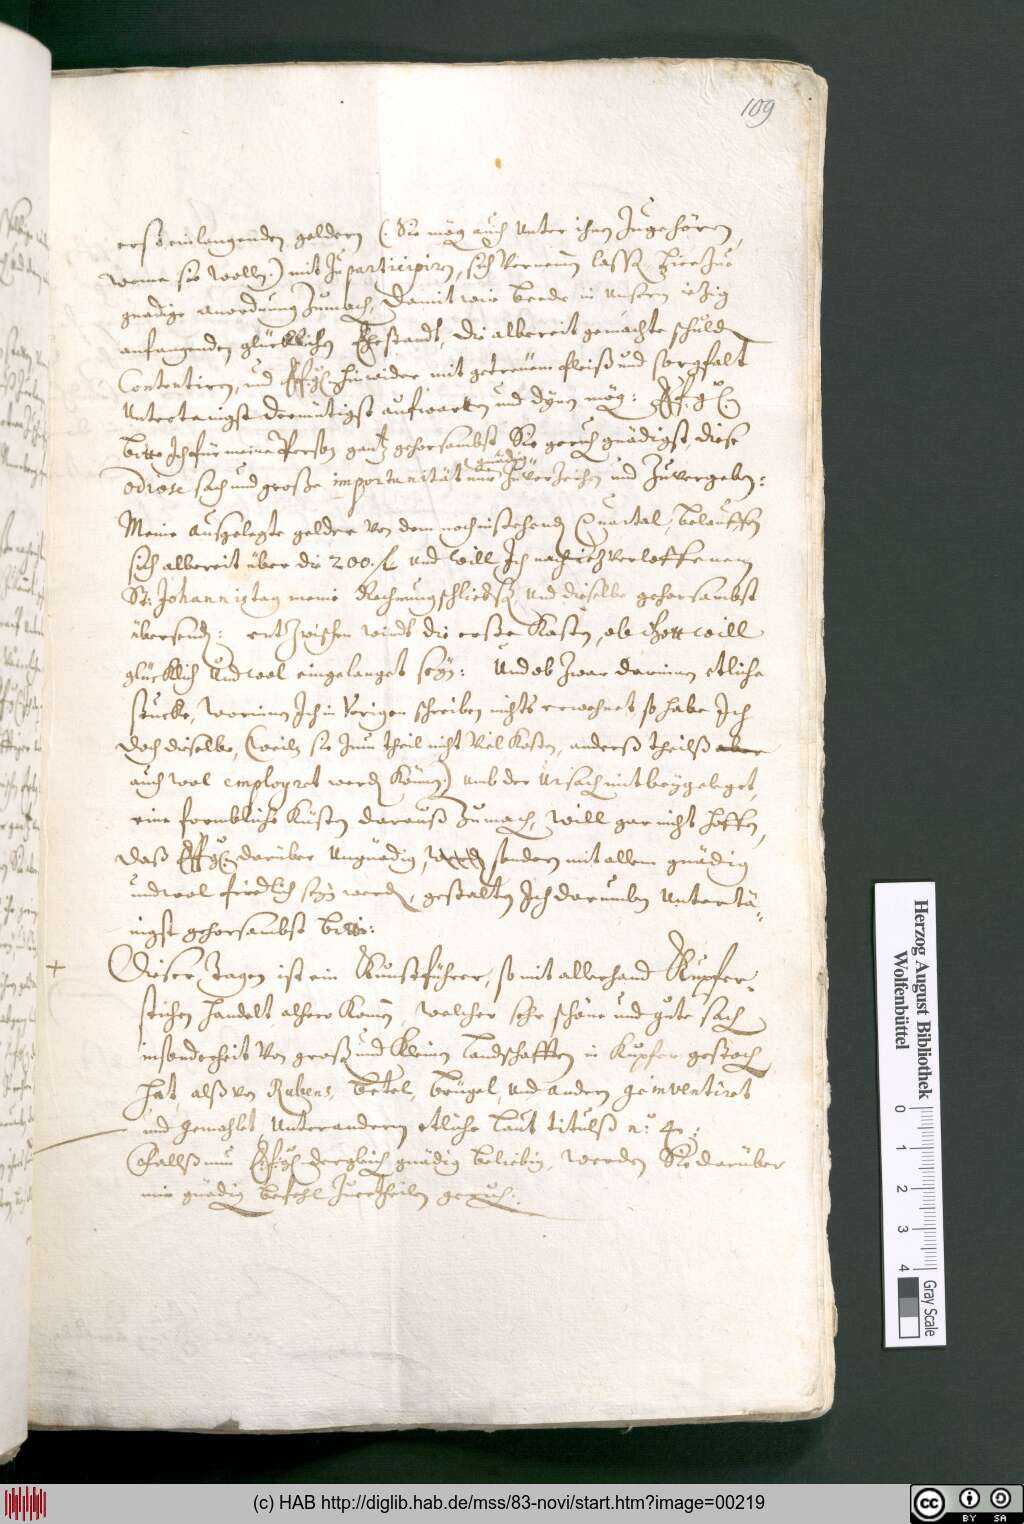 109
erst einlangenden geldern (: Sie mög auch unter ihnen Zugehören,
wenne sie wollen:) mit Zu participiren, sich vernemen lassen hierzue
gnädige anordnung Zumachen, Damit wir beede in unsern ietzig
anfangenden glücklichen Ehestandt, die albereit gemachte schulden
Contentiren, und E. f. g. hinwider mit getreuem fleiß und sorgfalt
Untertenigst demütigst aufwarten und dienen mög: E. f. g.
bitte Ich für meine Person gantz gehorsambst Sie geruhen gnädigst, diese
gnädig
odiose sach und große importunität mir Zuverzeihen und Zuvergeben:
Meine ausgelegte gelder von dem noch instehenden Quartal, belauffen
sich albereit über die 200. fl und will Ich nach ietz verloffenem
St: Johannistag meine Rechnung schließen und dieselbe gehorsambst
übersenden: entzwischen wirdt die erste Kasten, ob Gott will
glücklich und wol eingelanget seyn: Und ob zwar darinnen etliche
stucke, worinnen Ich in Vorigen schreiben nichts erwehnet so habe Ich
doch dieselbe, (weiln sie zum theil nicht viel kosten, anderß theilß aber
auch wol employret werden können:) umb der Ursach mit beygeleget,
eine formbliche Küsten darauß Zumachen, will gar nicht hoffen,
daß E. f. g. darüber Ungnädig, sondern mit allem gnädig
und wol friedlich seyn werden, gestalten Ich darumben Untertä-
nigst gehorsambst bitte:
Dieser Tagen ist ein Kunstführer, so mit allerhand Kupfer-
stichen handelt alhero kommen, welcher sehr schöne und gute sachen
insonderheit von großen und kleinen landschafften in Kupfer gestochen
hat, alß von Rubens, betel, brügel, und andern geinventiret
und gemahlt, Unter andern etliche laut titulß n:o 4:
(fallß nun E. f. g. dergleichen gnädig beliebig, werden Sie darüber
mir gnädig befehl Zuertheilen geruhen:
Herzog August Bibliothek
Wolfenbüttel
0 1 2 3 4
Gray Scale
(c) HAB http://diglib.hab.de/mss/83-novi/start.htm?image=00219
cc BY SA